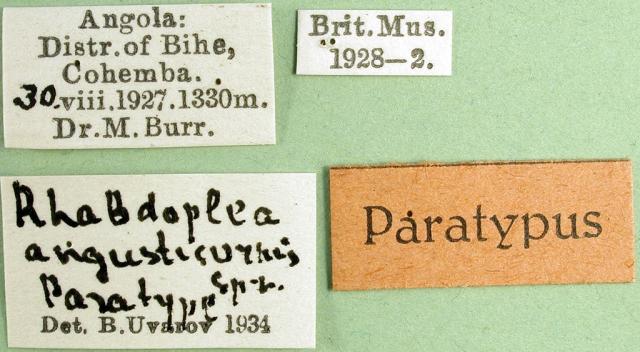 Angola:
Distr. of Bihe,
Cohemba.
30.viii.1927.1330m.
Dr. M. Burr.
Brit. Mus.
1928—2.
Rhabdoplea
angusticornis
Paratype sp.n.
Det. B. Uvarov 1934
Paratypus